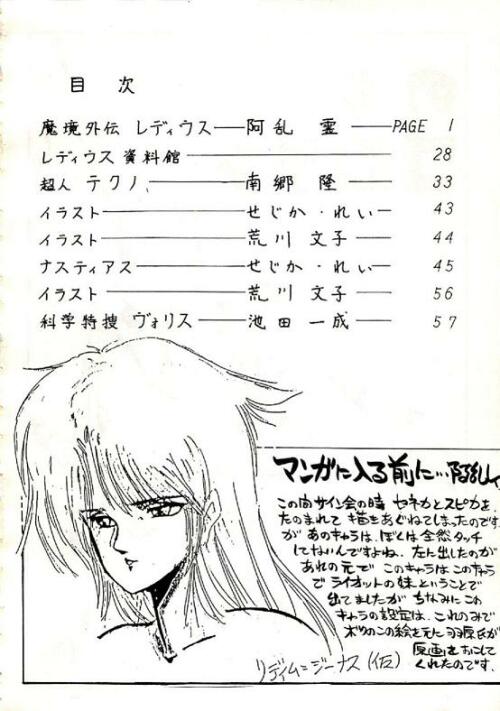 目次
魔境外伝 レディウス――阿乱 霊――PAGE 1
レディウス資料館――28
超人 テクノ――南郷 隆――33
イラスト――せじか・れい――43
イラスト――荒川 文子――44
ナスティアス――せじか・れい――45
イラスト――荒川 文子――56
科学特捜 ヴォリス――池田 一成――57
マンガに入る前に…阿乱
この間サイン会の時 セネカとスピカを
たのまれて 描きあぐねてしまったのです
が あのキャラは、ぼくは全然タッチ
してないんですよね、左に出したのが
あれの元で このキャラはこのキャラ
で ライオットの妹ということで
出てましたが ちなみにこの
キャラの設定は、これのみで
ボクのこの絵を元に羽原氏が
原画をおこして
くれたのです。
リディム=ジーナス(仮)